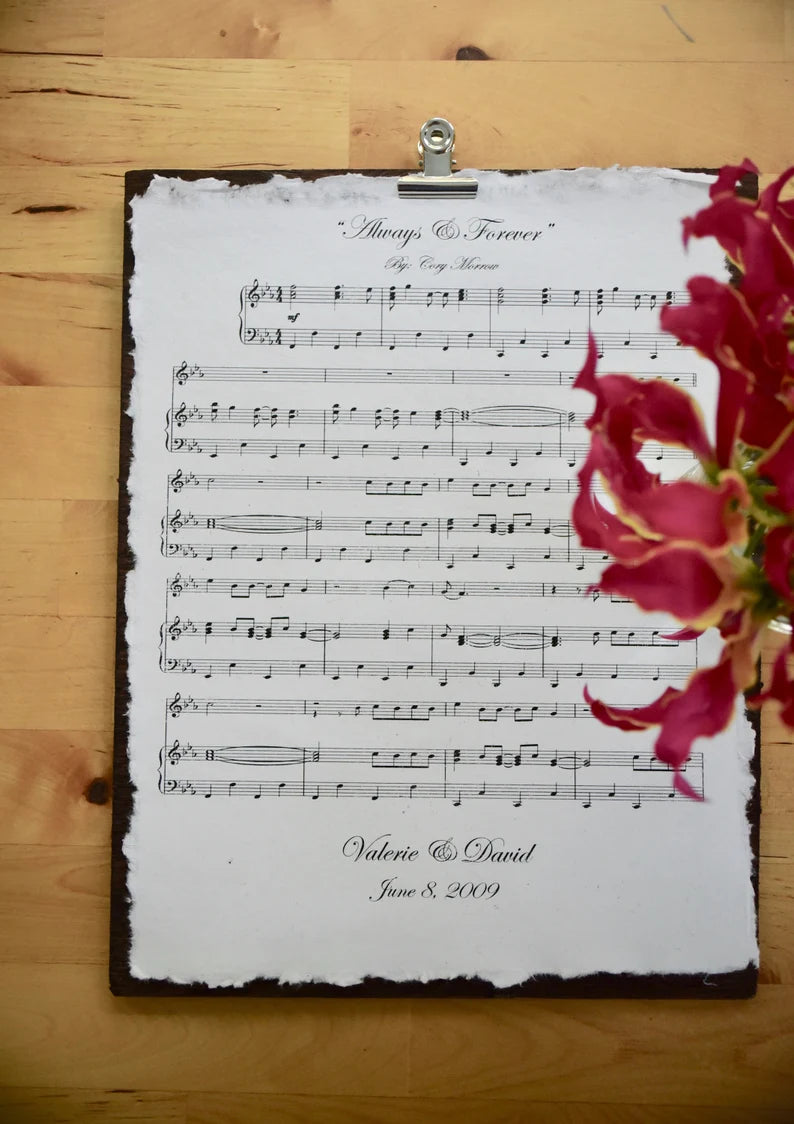 "Always & Forever"
By: Cory Morrow
mf
Valerie & David
June 8, 2009